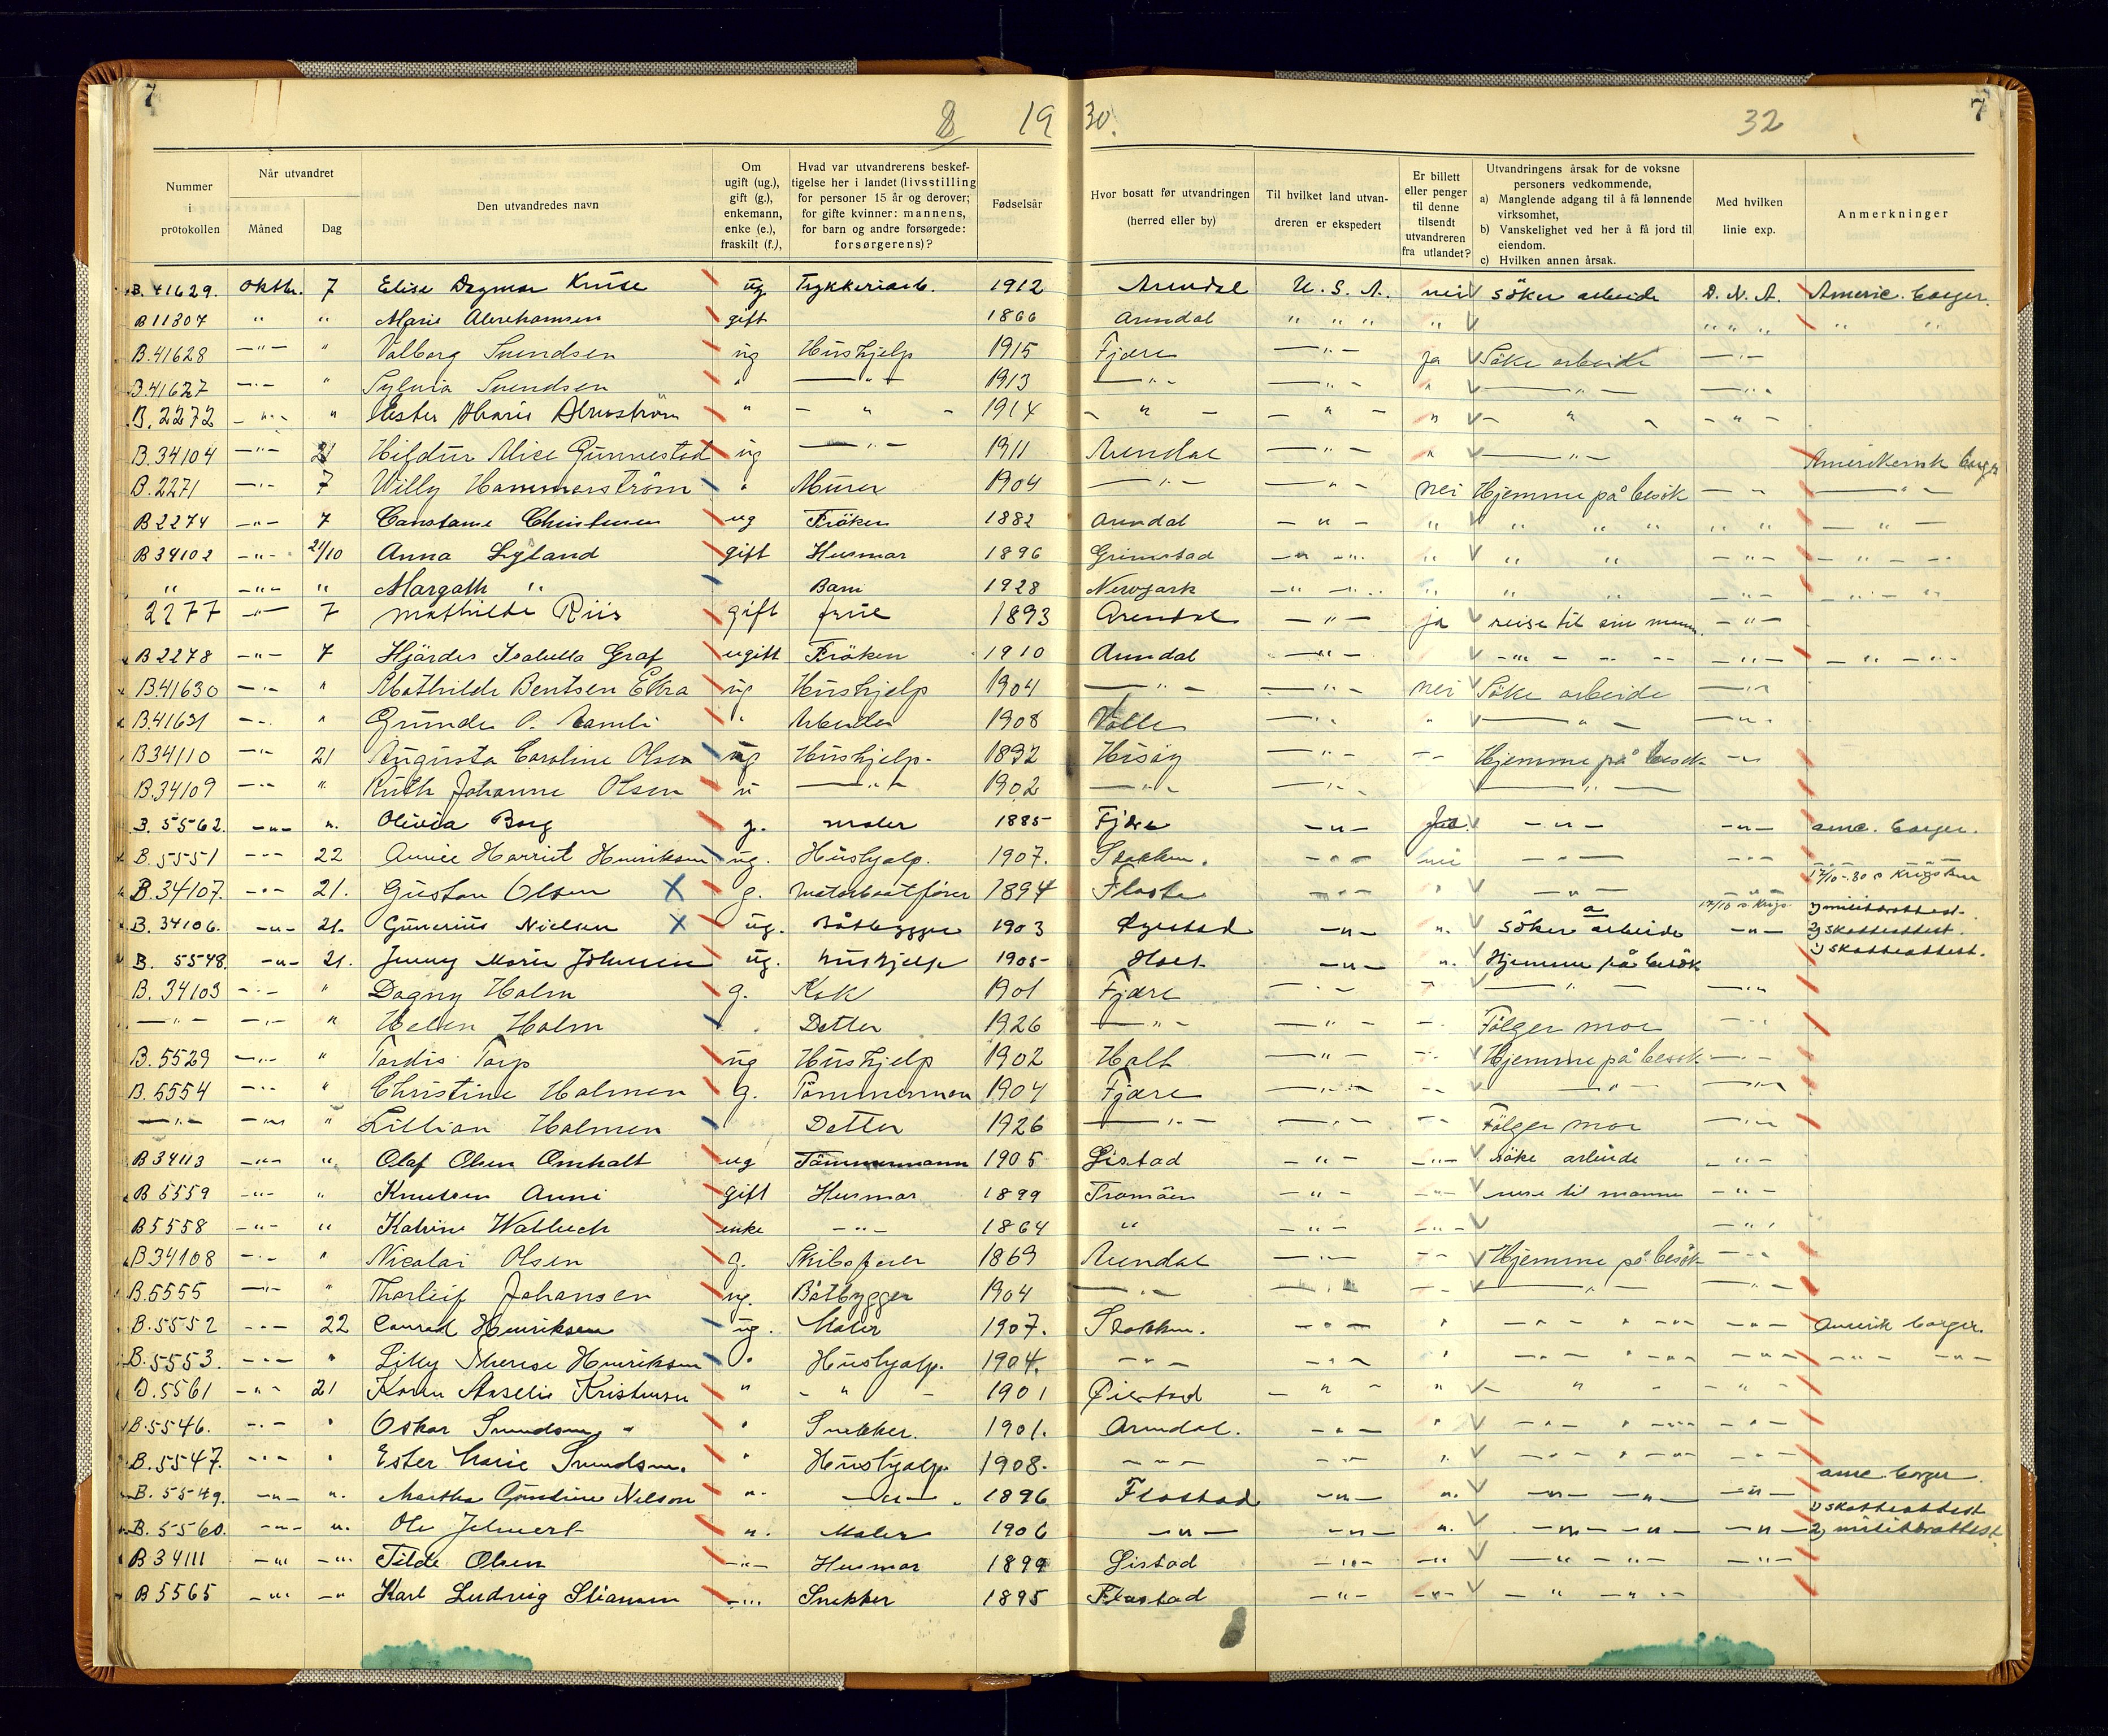 7
8
19 30.
32
7
Nummer i protokollen | Når utvandret Måned Dag | Den utvandredes navn | Om ugift (ug.), gift (g.), enkemann, enke (e.), fraskilt (f.), | Hvad var utvandrerens beskef-tigelse her i landet (livsstilling for personer 15 år og derover; for gifte kvinner: mannens, for barn og andre forsørgede: forsørgerens)? | Fødselsår | Hvor bosatt før utvandringen (herred eller by) | Til hvilket land utvan-dreren er ekspedert | Er billett eller penger til denne tilsendt utvandreren fra utlandet? | Utvandringens årsak for de voksne personers vedkommende, a) Manglende adgang til å få lønnende virksomhet, b) Vanskelighet ved her å få jord til eiendom. c) Hvilken annen årsak. | Med hvilken linie exp. | Anmerkninger
B. 41629. Oktbr. 7 Elise Dagmar Kruse ug Trykkeriarb. 1912 Arendal U.S.A. nei söker arbeide D.N.A. Americ. borger.
B 11307 " " Marie Abrahamsen gift 1866 Arendal " " " " " " " " "
B. 41628 -"- " Valborg Svendsen ug Hushjelp 1915 Fjære -"- ja Söke arbeide -"-
B. 41627 -"- " Sylvia Svendsen " -"- 1913 -"- -"- " -"- -"-
B. 2272 -"- " Ester Marie " - " - 1914 - " - - " - " - " - - " -
B. 34104 -"- 21 Hildur Alice Gunnestad ug -"- 1911 Arendal -"- " -"- Amerikansk borger
B. 2271 -"- 7 Willy Hammerström " Murer 1904 -"- -"- nei Hjemme på besök - - -"-
B 2274 -"- 7 Constance Christensen ug Fröken 1882 Arendal - " - " " " " " " -"-
B 34102 -"- 21/10 Anna Lyland gift Husmor 1896 Grimstad -"- " " " -"- -"-
" -"- " Margoth " Barn 1928 Newyork -"- " " " -"- -"-
2277 -"- 7 Mathilde Riis gift frue 1893 Arendal -"- ja reise til sin mann. -"-
B 2278 -"- 7 Hjördis Isabella Graf ugift Fröken 1910 Arendal -"- -"- -"- -"-
B. 41630 -"- " Mathilde Bentsen Ekra ug Hushjelp 1904 -"- -"- nei Söke arbeide -"-
B. 41631 -"- " Gunder O. " Arbeider 1908 Valle -"- " -"- -"-
B 34110 -"- 21 Augusta Caroline Olsen ug Hushjelp. 1892 Hisöy -"- -"- Hjemme på besök -"-
B. 34109 -"- " Ruth Johanne Olsen " -"- 1902 -"- -"- -"-
B. 5562. -"- ". Olivia Borg g. maler 1885 Fjære -"- Ja. -"- -"- ame. borger.
B. 5551 -"- 22 Annie Harriet Henriksen ug. Hushjælp. 1907. Stokken. -"- nei -"- -"-
B. 34107. -"- 21. Gustav Olsen X g. Motorbaatförer 1894 Flosta -"- " -"- 17/10-30
B. 34106. -"- 21. Gunerius Nielsen X ug. Båtbygger 1903 Öyestad -"- ". a söker arbeide -"- 1) militærattest. 2) skatteattest.
B. 5548. -"- 21. Jenny Marie Johnsen ug. hushjelp 1905 Holt -"- ". Hjemme på besök 1) skatteattest.
B. 34103 -"- " Dagny Holm g. Kok 1901 Fjære -"- -"- -"- -"-
-"- -"- " Helen Holm Datter 1926 -"- -"- -"- Fölger mor -"-
B. 5529 -"- " Tordis Torp ug Hushjelp 1902 Holt -"- -"- Hjemme på besök -"-
B. 5554 -"- " Christine Holmen g. Tömmermann 1904 Fjære -"- -"- -"- -"-
-"- -"- " Lillian Holmen Datter 1926 -"- -"- -"- Fölger mor -"-
B 34113 -"- " Olaf Olsen Omholt ug Tömmermann 1905 Gistad -"- -"- söke arbeide -"-
B 5559 -"- " Knutsen Anni gift Husmor 1899 Tromöen -"- -"- reise til mannen -"-
B 5558 -"- " Katrine enke -"- 1864 " -"- -"- -"-
B 34108 -"- " Nicolai Olsen g. Skibsfører 1869 Arendal -"- -"- Hjemme på besök -"-
B. 5555 -"- " Thorleif Johansen ug. Båtbygger 1904 -"- -"- -"- -"- -"-
B. 5552 -"- 22 Conrad Henriksen ug. Maler 1907. Stokken. -"- " -"- " -"- -"- Amerik borger.
B. 5553. -"- " Lilly Therese Henriksen " Hushjælp. 1904. -"- -"- " -"- " -"- -"- -"- -"-
B. 5561 -"- 21 Karen Kristensen " - " - 1901 Öiestad - " - " - " - - " -
B. 5546. -"- " Oskar Svendsen " Snekker. 1901. Arendal. -"- " -"- " -"- -"-
B. 5547. -"- " Ester Marie Svendsen. " Hushjælp. 1908. -"- -"- ". -"- " -"- -"-
B. 5549. -"- ". Martha Gundine Nelson ". -"-. 1896 Flostad -"- ". -"- -"- -"- ame. borger.
B. 5560. -"- ". Ole ". Maler 1906 -"- -"- ". -"- -"- -"- 1) skatteattest 2) militærattest
B 34111 -"- -"- Tilde Olsen -"- Husmor 1899 Gistad -"- -"- -"- -"- -"-
B 5565 -"- -"- Karl Ludvig Stiansen -"- Snekker 1895 Flostad -"- -"- -"- -"-